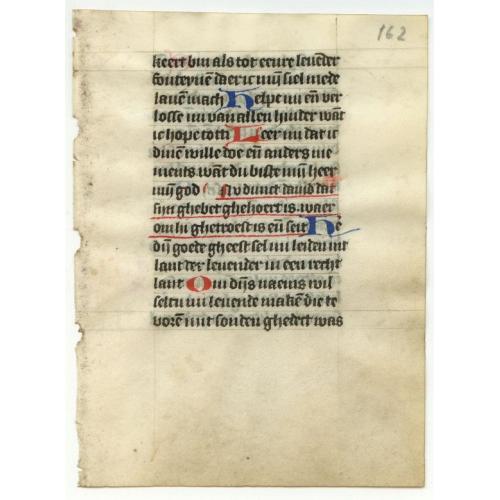 162
keert bin als tot eenre levender
fonteynē daer ic mijn siel mede
lavē mach Helpe mi eñ ver
losse mi van allen hinder wāt
ic hope tot di Leer mi dat ic
dinē wille doe eñ anders nie
ments wāt du biste mijn heer
mijn god Nv dunct david dat
sijn ghebet ghehoert is waer
om hi ghetroest is eñ seit He
dijn goede gheest sel mi leiden int
lant der levender in een recht
lant Om dijns naems wil
selstu mi levende makē die te
voren mit sonden ghedect was